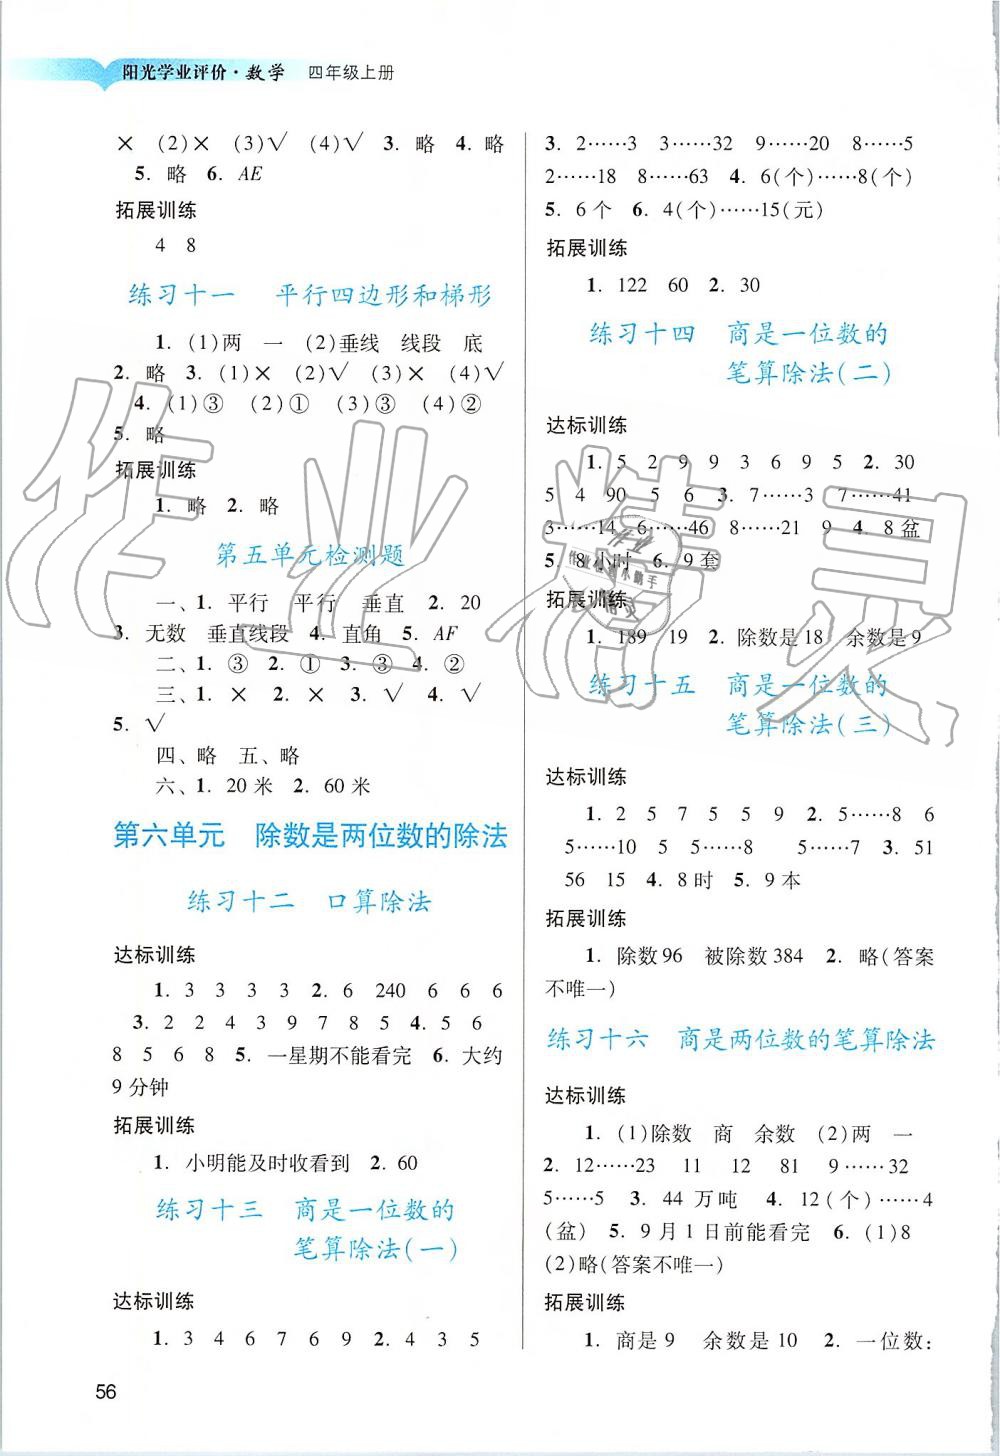 阳光学业评价·数学 四年级上册
× (2)× (3)√ (4)√ 3. 略 4. 略
5. 略 6. AE
拓展训练
4 8
练习十一 平行四边形和梯形
1. (1)两 一 (2)垂线 线段 底
2. 略 3. (1)× (2)√ (3)× (4)√
4. (1)③ (2)① (3)③ (4)②
5. 略
拓展训练
1. 略 2. 略
第五单元检测题
一、1. 平行 平行 垂直 2. 20
3. 无数 垂直线段 4. 直角 5. AF
二、1. ③ 2. ① 3. ③ 4. ②
三、1. × 2. × 3. √ 4. √
5. √
四、略 五、略
六、1. 20米 2. 60米
第六单元 除数是两位数的除法
练习十二 口算除法
达标训练
1. 3 3 3 3 2. 6 240 6 6 6
3. 2 2 4 3 9 7 8 5 4. 5 6
8 5 6 8 5. 一星期不能看完 6. 大约
9分钟
拓展训练
1. 小明能及时收看到 2. 60
练习十三 商是一位数的
笔算除法(一)
达标训练
1. 3 4 6 7 6 9 2. 4 3 5
3. 2……3 3……32 9……20 8……5
2……18 8……63 4. 6(个)……8(个)
5. 6个 6. 4(个)……15(元)
拓展训练
1. 122 60 2. 30
练习十四 商是一位数的
笔算除法(二)
达标训练
1. 5 2 9 9 3 6 9 5 2. 30
5 4 90 5 6 3. 7……3 7……41
3……14 6……46 8……21 9 4. 8盆
5. 8小时 6. 9套
拓展训练
1. 189 19 2. 除数是18 余数是9
练习十五 商是一位数的
笔算除法(三)
达标训练
1. 2 5 7 5 5 9 2. 5……8 6
5……10 5 5……8 5……7 3. 51
56 15 4. 8时 5. 9本
拓展训练
1. 除数96 被除数384 2. 略(答案
不唯一)
练习十六 商是两位数的笔算除法
达标训练
1. (1)除数 商 余数 (2)两 一
2. 12……23 11 12 81 9……32
5……5 3. 44万吨 4. 12(个)……4
(盆) 5. 9月1日前能看完 6. (1)8
(2)略(答案不唯一)
拓展训练
1. 商是9 余数是10 2. 一位数:
56
作业精灵